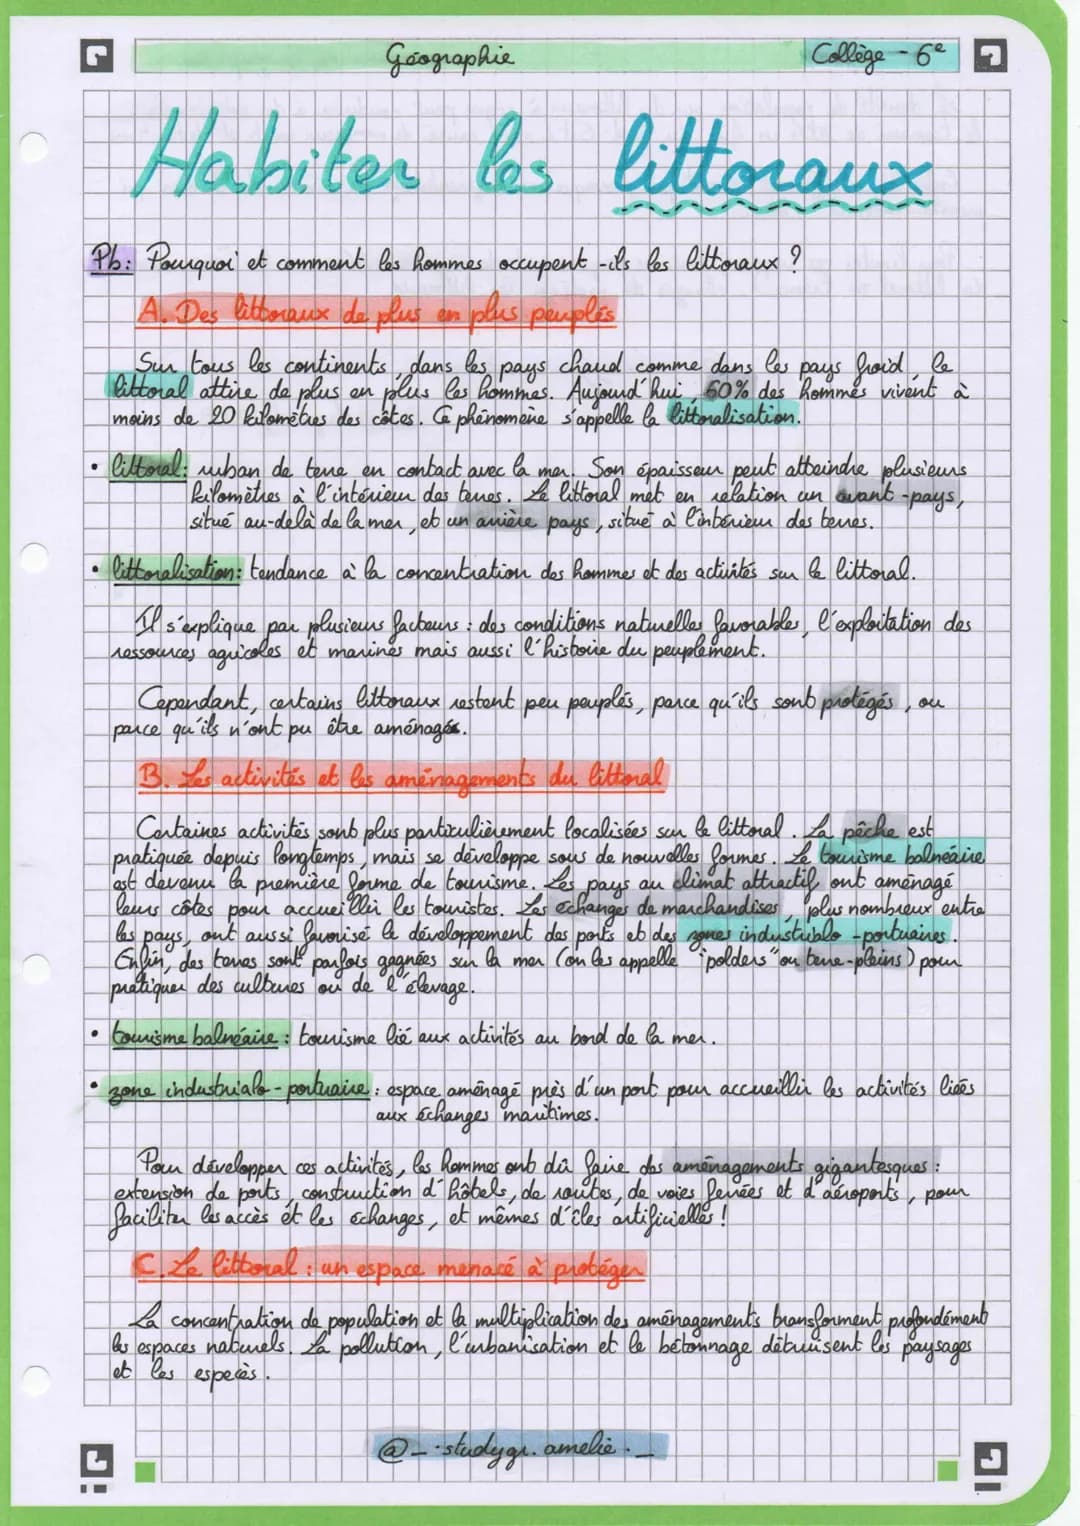 Géographie
Collège - 6e
Habiter les littoraux
Pb: Pourquoi et comment les hommes occupent-ils les littoraux ?
A. Des littoraux de plus en plus peuplés
Sur tous les continents, dans les pays chaud comme dans les pays froid, le
littoral attire de plus en plus les hommes. Aujourd'hui, 60% des hommes vivent à
moins de 20 kilomètres des côtes. Ce phénomène s'appelle la littoralisation.
• littoral : ruban de terre en contact avec la mer. Son épaisseur peut atteindre plusieurs
kilomètres à l'intérieur des terres. Le littoral met en relation un avant-pays,
situé au-delà de la mer, et un arrière pays, situé à l'intérieur des terres.
• littoralisation : tendance à la concentration des hommes et des activités sur le littoral.
Il s'explique par plusieurs facteurs : des conditions naturelles favorables, l'exploitation des
ressources agricoles et marines mais aussi l'histoire du peuplement.
Cependant, certains littoraux restent peu peuplés, parce qu'ils sont protégés, ou
parce qu'ils n'ont pu être aménagés.
B. Les activités et les aménagements du littoral
Certaines activités sont plus particulièrement localisées sur le littoral. La pêche est
pratiquée depuis longtemps, mais se développe sous de nouvelles formes. Le tourisme balnéaire
est devenu la première forme de tourisme. Les pays au climat attractif ont aménagé
leurs côtes pour accueillir les touristes. Les échanges de marchandises, plus nombreux entre
les pays, ont aussi favorisé le développement des ports et des zones industrialo-portuaires.
Enfin, des terres sont parfois gagnées sur la mer (on les appelle "polders" ou terre-pleins) pour
pratiquer des cultures ou de l'élevage.
• tourisme balnéaire : tourisme lié aux activités au bord de la mer.
• zone industrialo-portuaire : espace aménagé près d'un port pour accueillir les activités liées
aux échanges maritimes.
Pour développer ces activités, les hommes ont dû faire des aménagements gigantesques :
extension de ports, construction d'hôtels, de routes, de voies ferrées et d'aéroports, pour
faciliter les accès et les échanges, et mêmes d'îles artificielles !
C. Le littoral : un espace menacé à protéger
La concentration de population et la multiplication des aménagements transforment profondément
les espaces naturels. La pollution, l'urbanisation et le bétonnage détruisent les paysages
et les espèces.
@_.studygr.amelie._